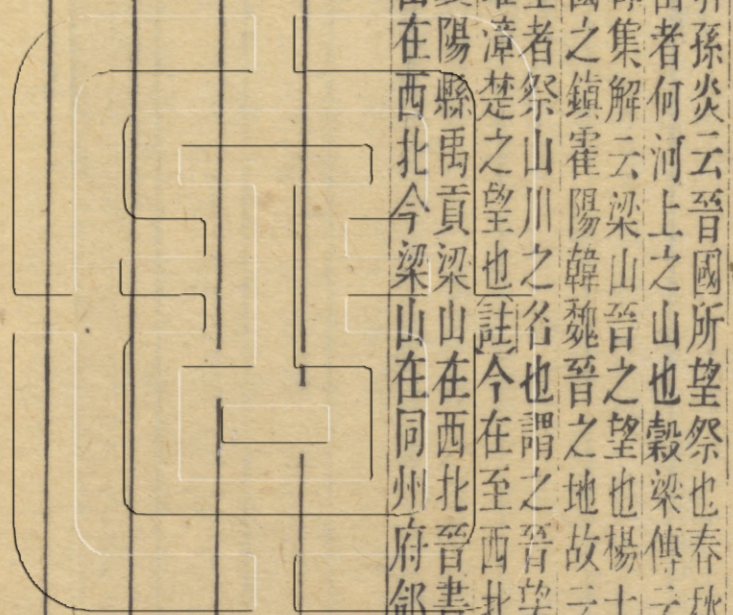 孫炎云晉國所望祭也春秋
者何河上之山也穀梁傳
集解云梁山晉之望也楊士
之鎮霍陽韓魏晉之地故云
者祭山川之名也謂之晉望
漳楚之望也註今在至西北
陽縣禹貢梁山在西北晉書
在西北今梁山在同州府郃